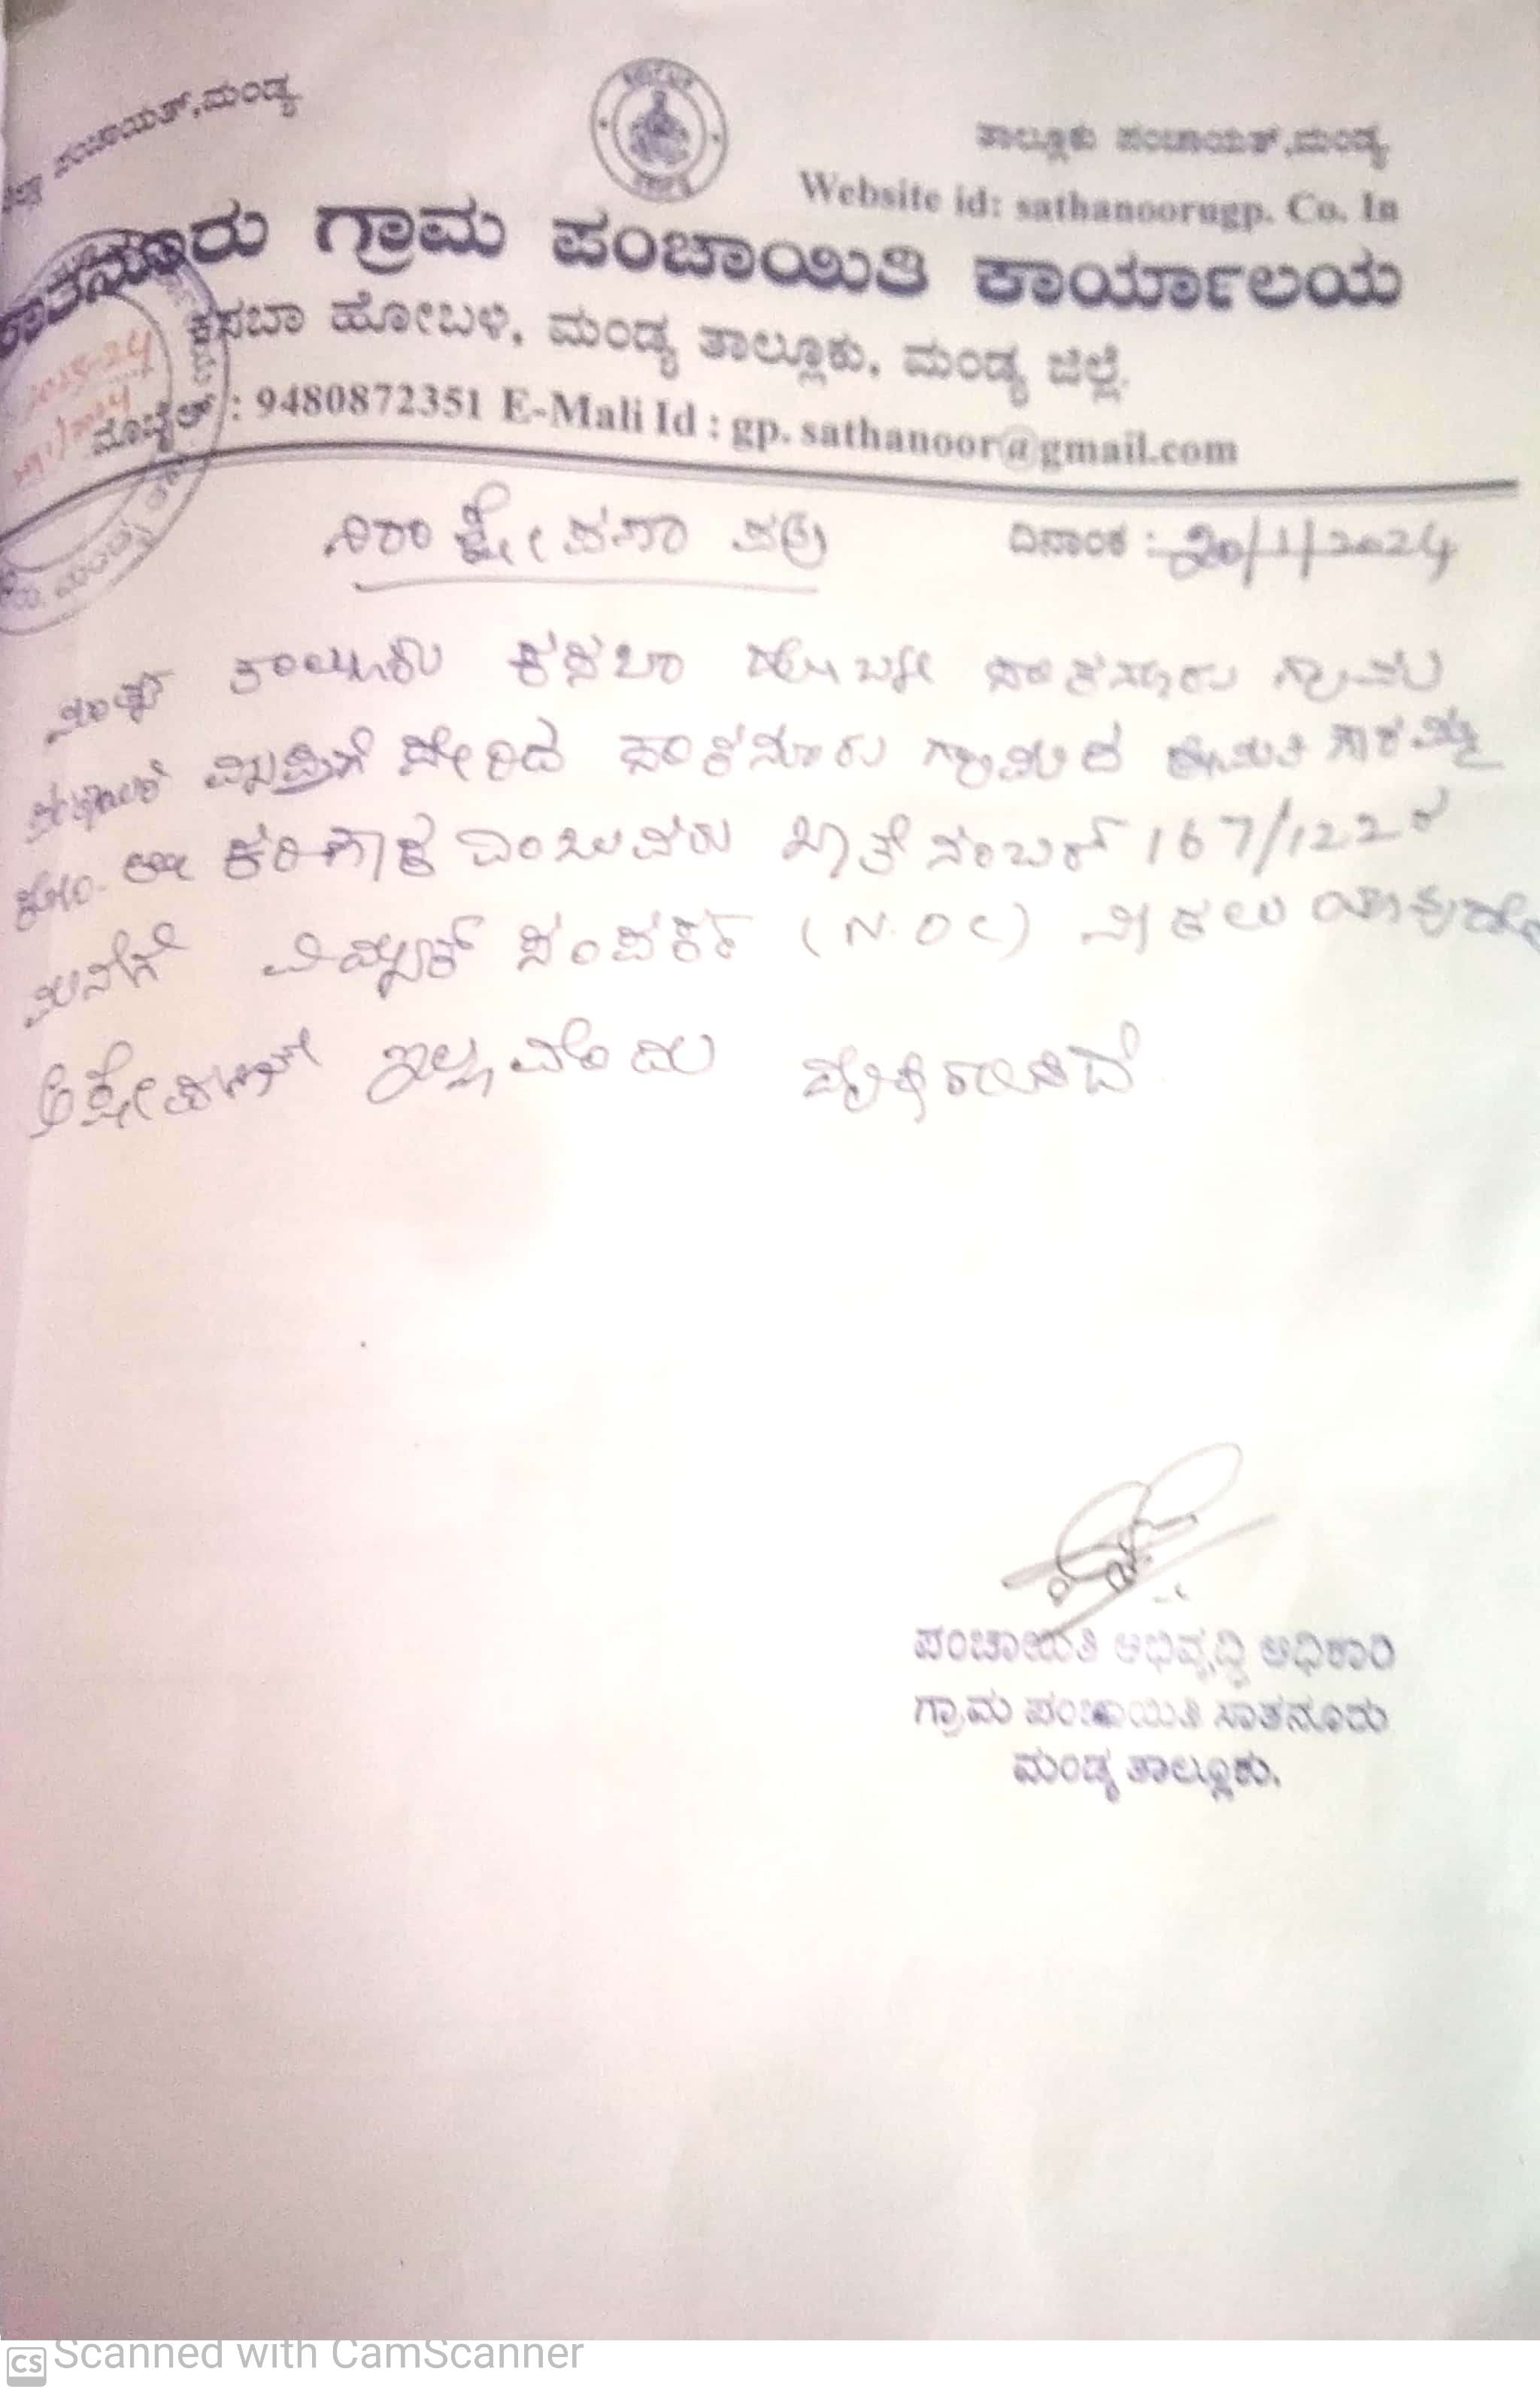 ಪಂಚಾಯತ್,ಮಂಡ್ಯ
ತಾಲ್ಲೂಕು ಪಂಚಾಯತ್,ಮಂಡ್ಯ
Website id: sathanoorugp. Co. In
ಸಾತನೂರು ಗ್ರಾಮ ಪಂಚಾಯಿತಿ ಕಾರ್ಯಾಲಯ
ಕಸಬಾ ಹೋಬಳಿ, ಮಂಡ್ಯ ತಾಲ್ಲೂಕು, ಮಂಡ್ಯ ಜಿಲ್ಲೆ.
2023-24
ಮೊಬೈಲ್ : 9480872351 E-Mali Id : gp. sathanoor@gmail.com
ನಿರಾಕ್ಷೇಪಣಾ ಪತ್ರ ದಿನಾಂಕ : 20/1/2024
ಮಂಡ್ಯ ತಾಲ್ಲೂಕು ಕಸಬಾ ಹೋಬಳಿ ಸಾತನೂರು ಗ್ರಾಮ
ಪಂಚಾಯಿತಿ ವ್ಯಾಪ್ತಿಗೆ ಸೇರಿದ ಸಾತನೂರು ಗ್ರಾಮದ ಶ್ರೀಮತಿ
ಕೋಂ. ಎಂಬುವವರು ಖಾತೆ ನಂಬರ್ 167/122ರ
ಮನೆಗೆ ವಿದ್ಯುತ್ ಸಂಪರ್ಕ (N.O.C) ನೀಡಲು ಯಾವುದೇ
ಇಲ್ಲವೆಂದು ದೃಢೀಕರಿಸಿದೆ
ಪಂಚಾಯಿತಿ ಅಭಿವೃದ್ಧಿ ಅಧಿಕಾರಿ
ಗ್ರಾಮ ಪಂಚಾಯಿತಿ ಸಾತನೂರು
ಮಂಡ್ಯ ತಾಲ್ಲೂಕು.
CS Scanned with CamScanner